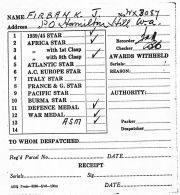 Name FIRBANK. K. J. No. WX3057
Address P.O. Hamilton Hill W.A.
1 1939/45 STAR
2 AFRICA STAR
3 " with 1st Clasp
4 " with 8th Clasp
5 ATLANTIC STAR
6 A.C. EUROPE STAR
7 ITALY STAR
8 FRANCE & G. STAR
9 PACIFIC STAR
10 BURMA STAR
11 DEFENCE MEDAL
12 WAR MEDAL
13 ASM
14
Recorder
Checker
AWARDS WITHHELD
Serials
AUTHORITY:
Authorised:
TO WHOM DESPATCHED
Reg'd Parcel No. Date
RECEIPT
Serial Signature
Date